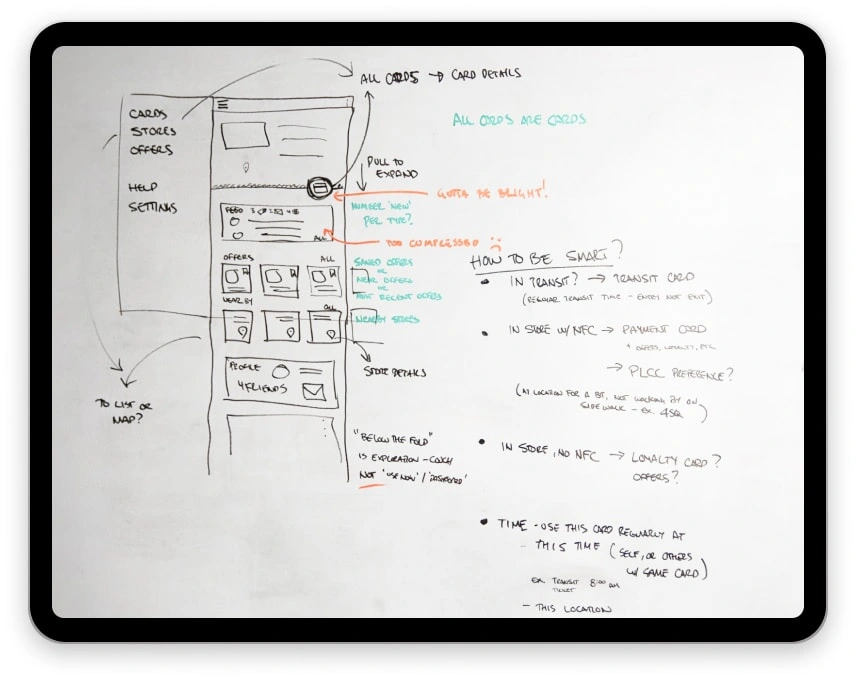 ALL CARDS → CARD DETAILS
ALL CARDS ARE CARDS
CARDS
STORES
OFFERS
HELP
SETTINGS
PULL TO
EXPAND
GOTTA BE BRIGHT!
NUMBER 'NEW'
PER TYPE?
FEED
ALL
TOO COMPRESSED
OFFERS
ALL
SAVED OFFERS
OR
NEAR OFFERS
OR
MOST RECENT OFFERS
NEARBY
ALL
NEARBY STORES
STORE DETAILS
PROFILE
4 FRIENDS
TO LIST OR
MAP?
"BELOW THE FOLD"
IS EXPLORATION - COUCH
NOT 'USE NOW' / 'DASHBOARD'
HOW TO BE SMART?
• IN TRANSIT? → TRANSIT CARD
(REGULAR TRANSIT TIME - ENTRY NOT EXIT)
• IN STORE W/ NFC → PAYMENT CARD
+ OFFERS, LOYALTY, ETC
→ PLCC PREFERENCE?
(AT LOCATION FOR A BIT, NOT WALKING BY ON
SIDEWALK - EX. 4SQ)
• IN STORE, NO NFC → LOYALTY CARD?
OFFERS?
• TIME - USE THIS CARD REGULARLY AT
- THIS TIME (SELF, OR OTHERS
W/ SAME CARD)
EX. TRANSIT 8:00 AM
TICKET
- THIS LOCATION